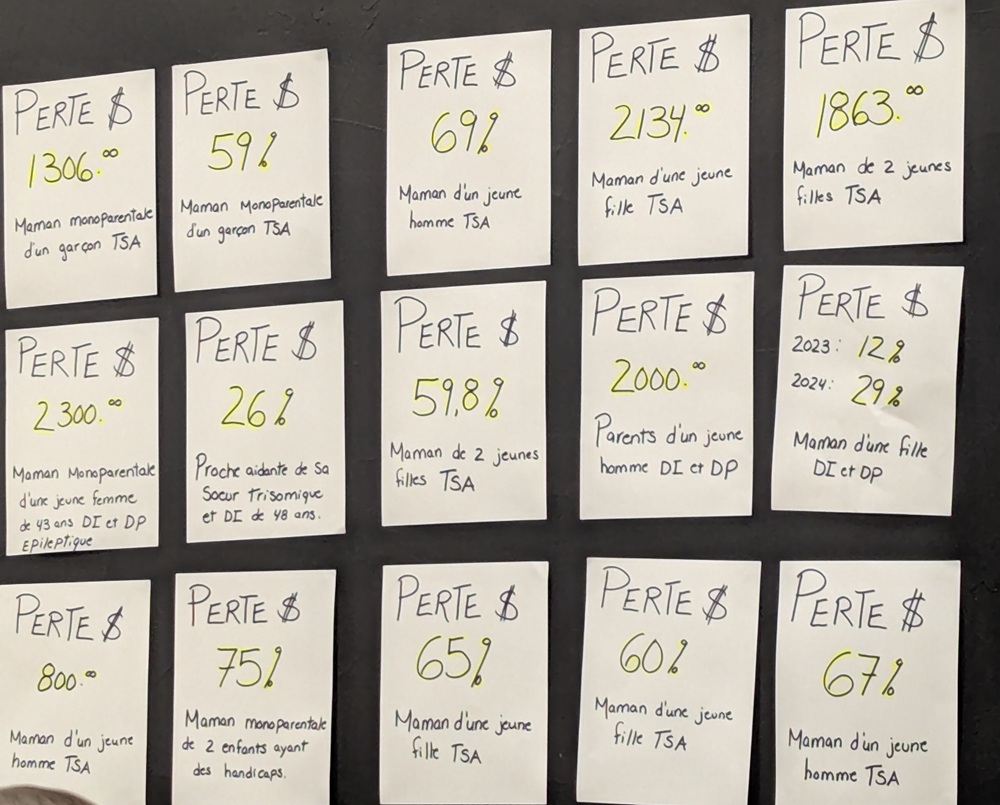 PERTE $
1306.00
Maman monoparentale
d'un garçon TSA
PERTE $
59%
Maman Monoparentale
d'un garçon TSA
PERTE $
69%
Maman d'un jeune
homme TSA
PERTE $
2134.00
Maman d'une jeune
fille TSA
PERTE $
1863.00
Maman de 2 jeunes
filles TSA
PERTE $
2300.00
Maman Monoparentale
d'une jeune femme
de 43 ans DI et DP
Epileptique
PERTE $
26%
Proche aidante de Sa
Soeur trisomique
et DI de 48 ans.
PERTE $
59,8%
Maman de 2 jeunes
filles TSA
PERTE $
2000.00
Parents d'un jeune
homme DI et DP
PERTE $
2023: 12%
2024: 29%
Maman d'une fille
DI et DP
PERTE $
800.00
Maman d'un jeune
homme TSA
PERTE $
75%
Maman monoparentale
de 2 enfants ayant
des handicaps.
PERTE $
65%
Maman d'une jeune
fille TSA
PERTE $
60%
Maman d'une jeune
fille TSA
PERTE $
67%
Maman d'un jeune
homme TSA